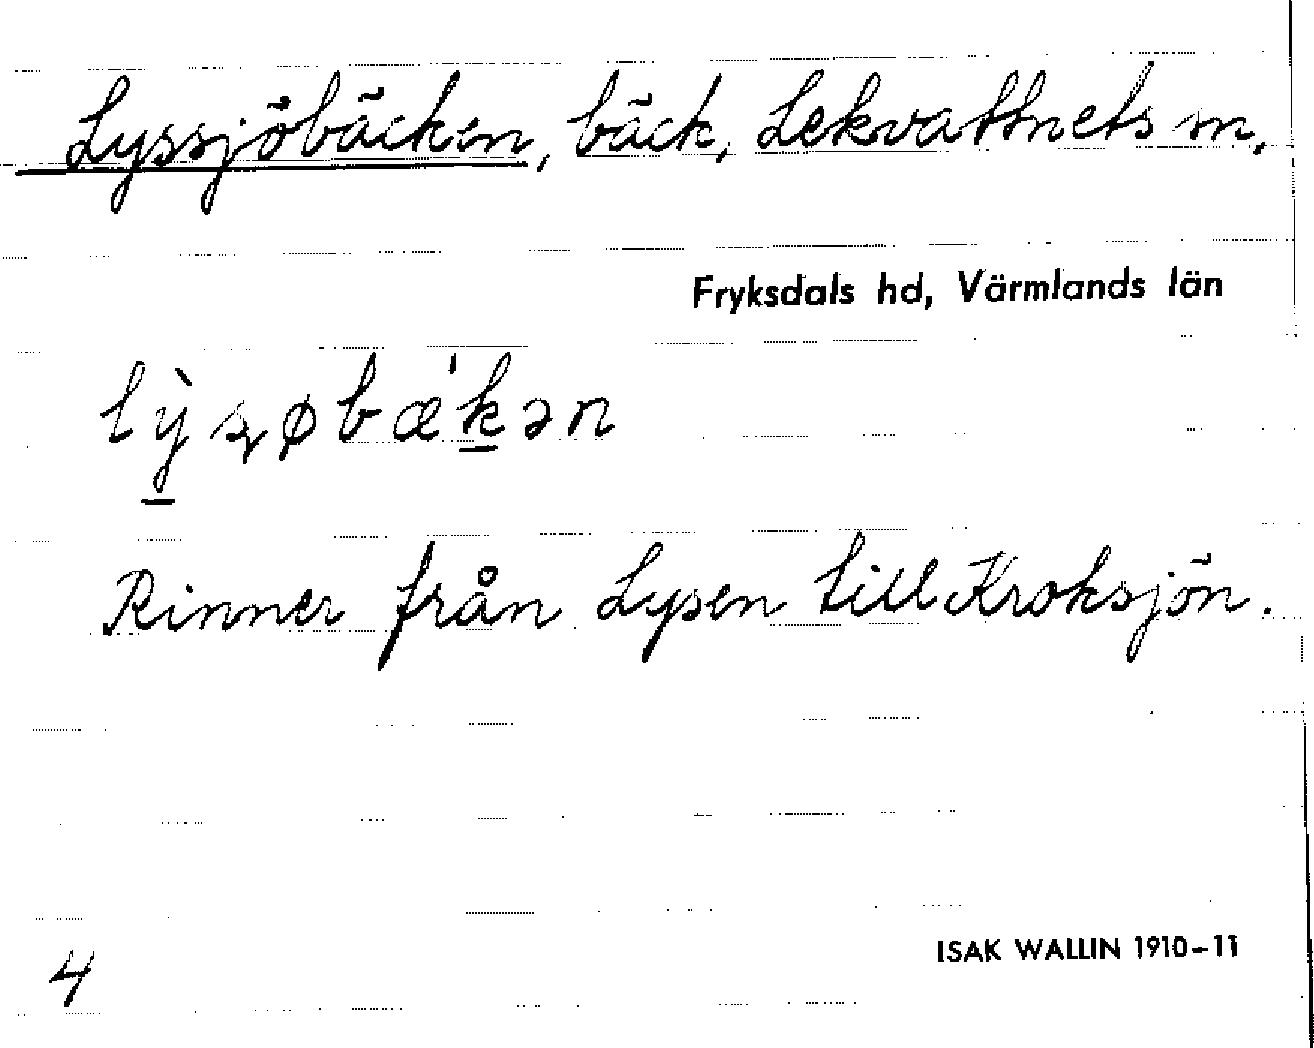 Lyssjöbäcken, bäck, Lekvattnets m,
Fryksdals hd, Värmlands län
lỳ̲ʂøbæ'k̲ən
Rinner från Lysen till Kroksjön.
4
ISAK WALLIN 1910-11